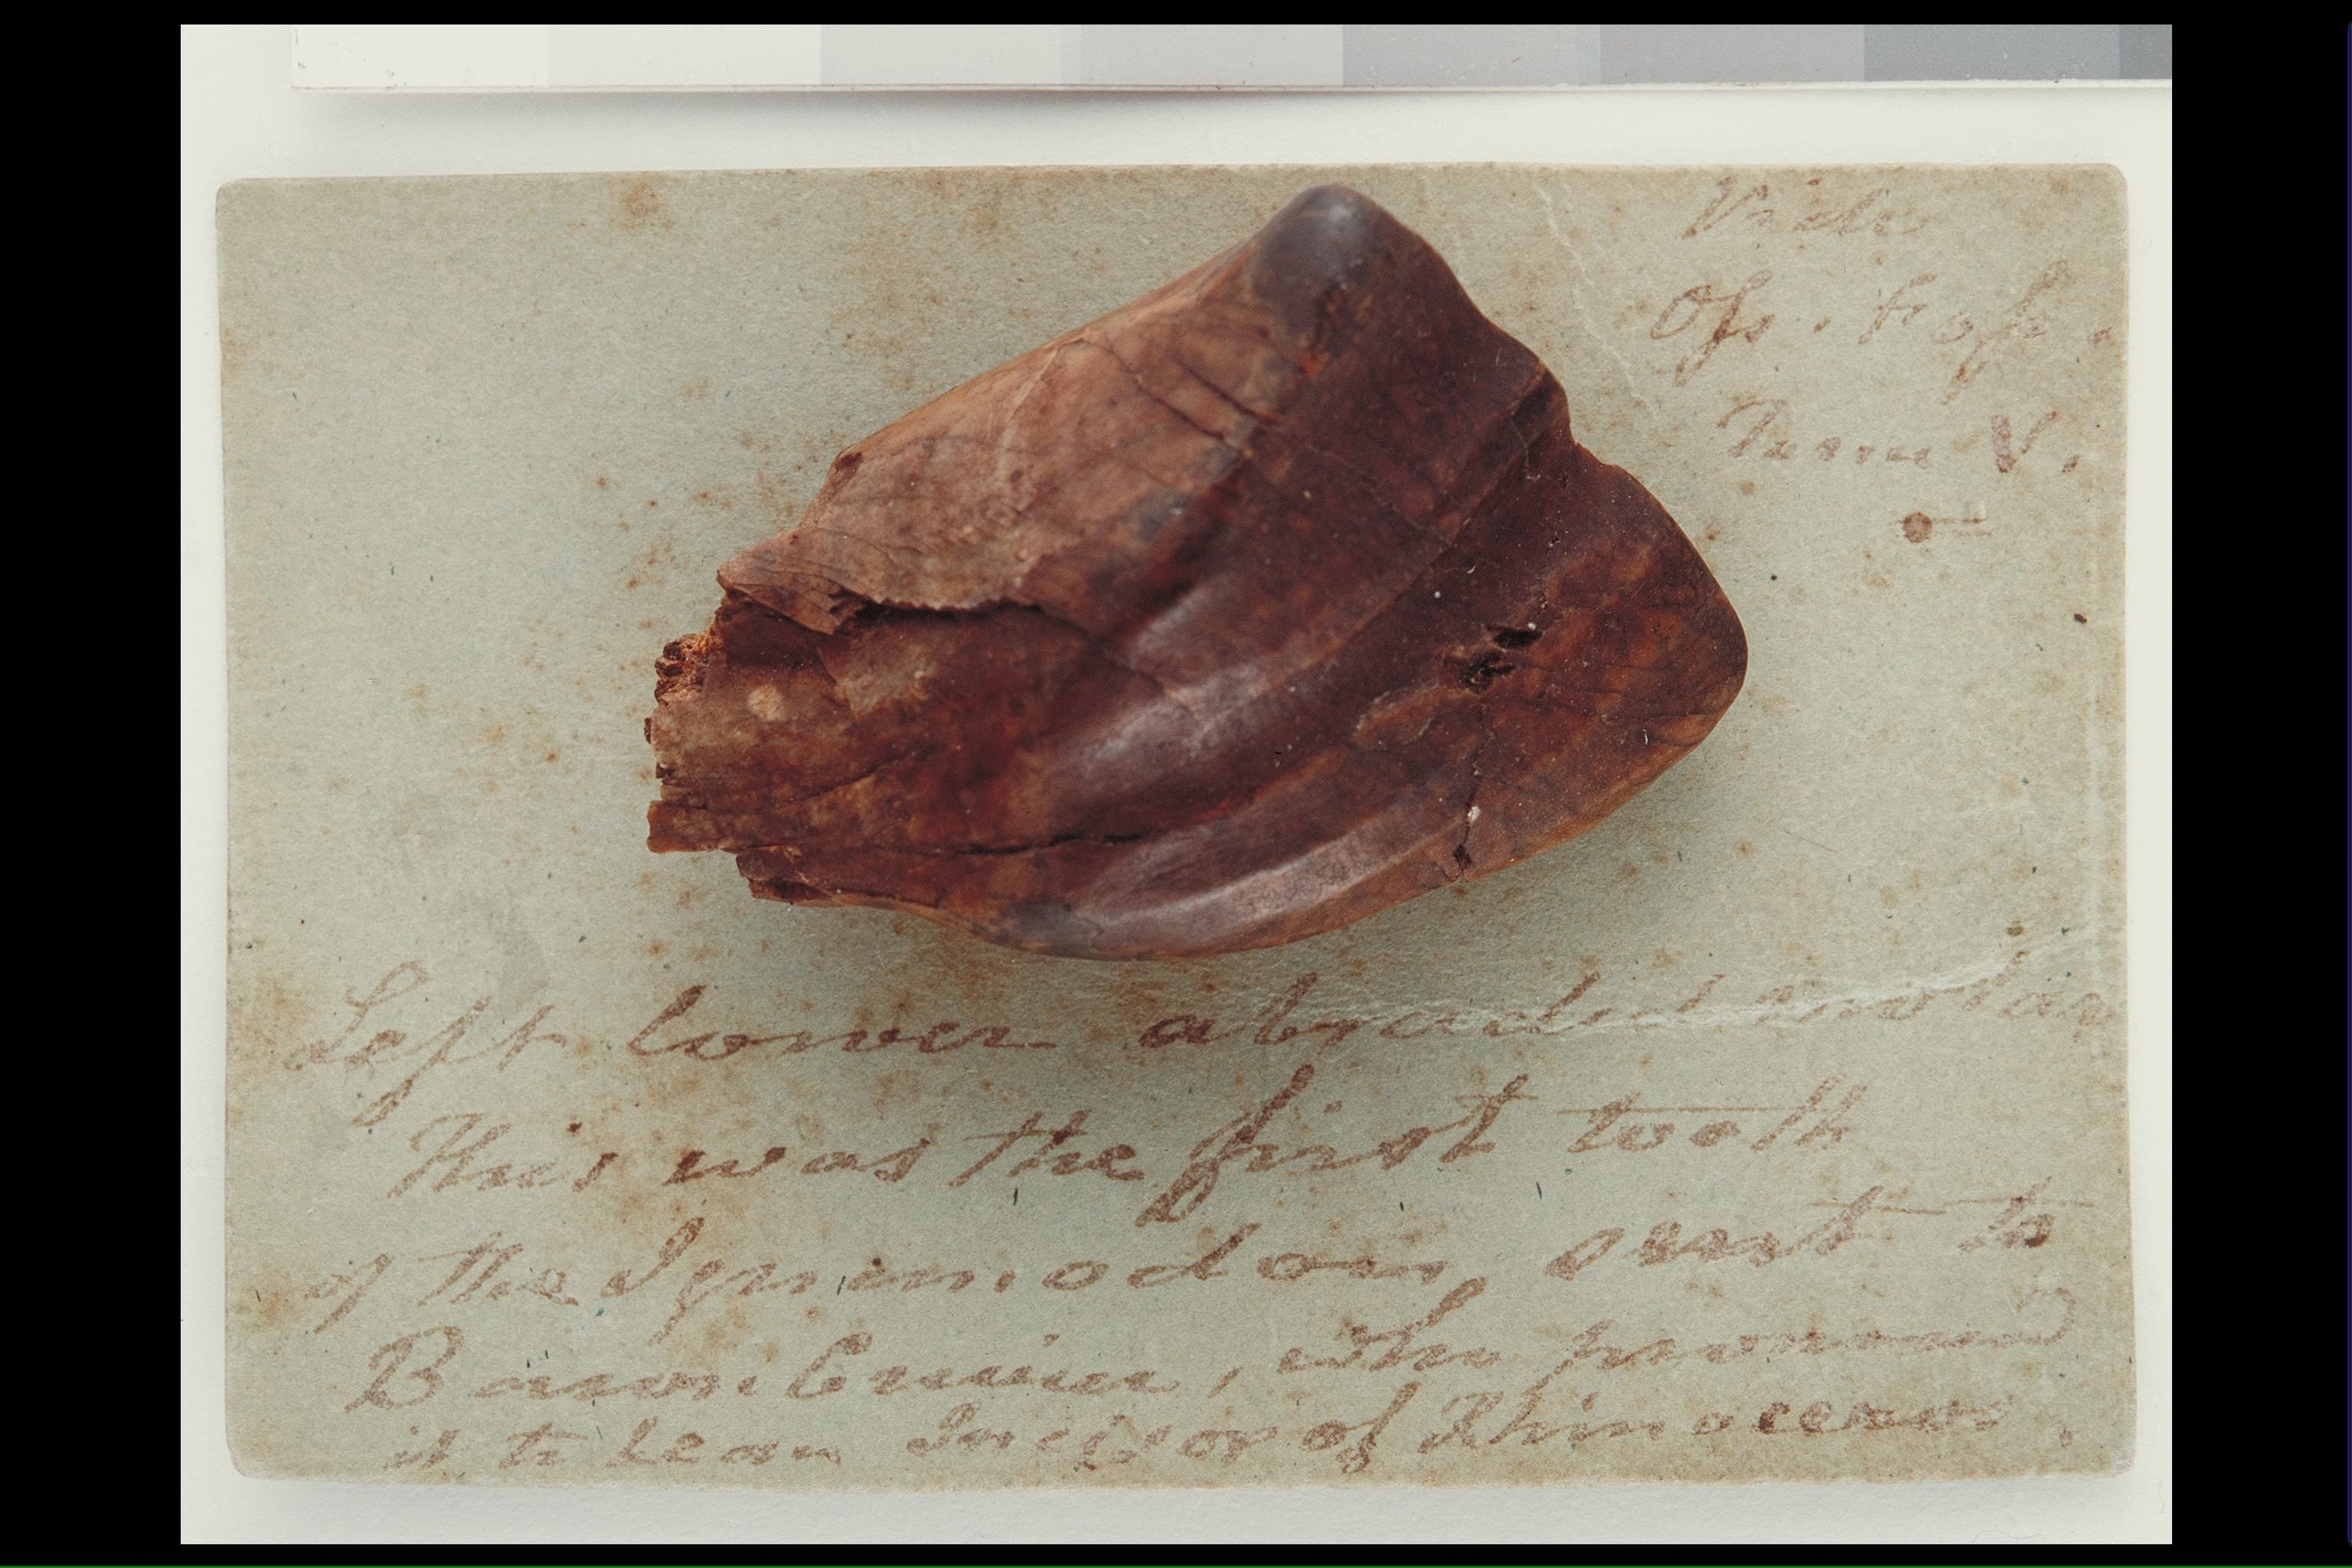 Vide
Oss. Foss.
Tome V.
Left lower abraded molar
This was the first tooth
of the Iguanodon sent to
Baron Cuvier, who pronounced
it to be an Incisor of Rhinoceros.